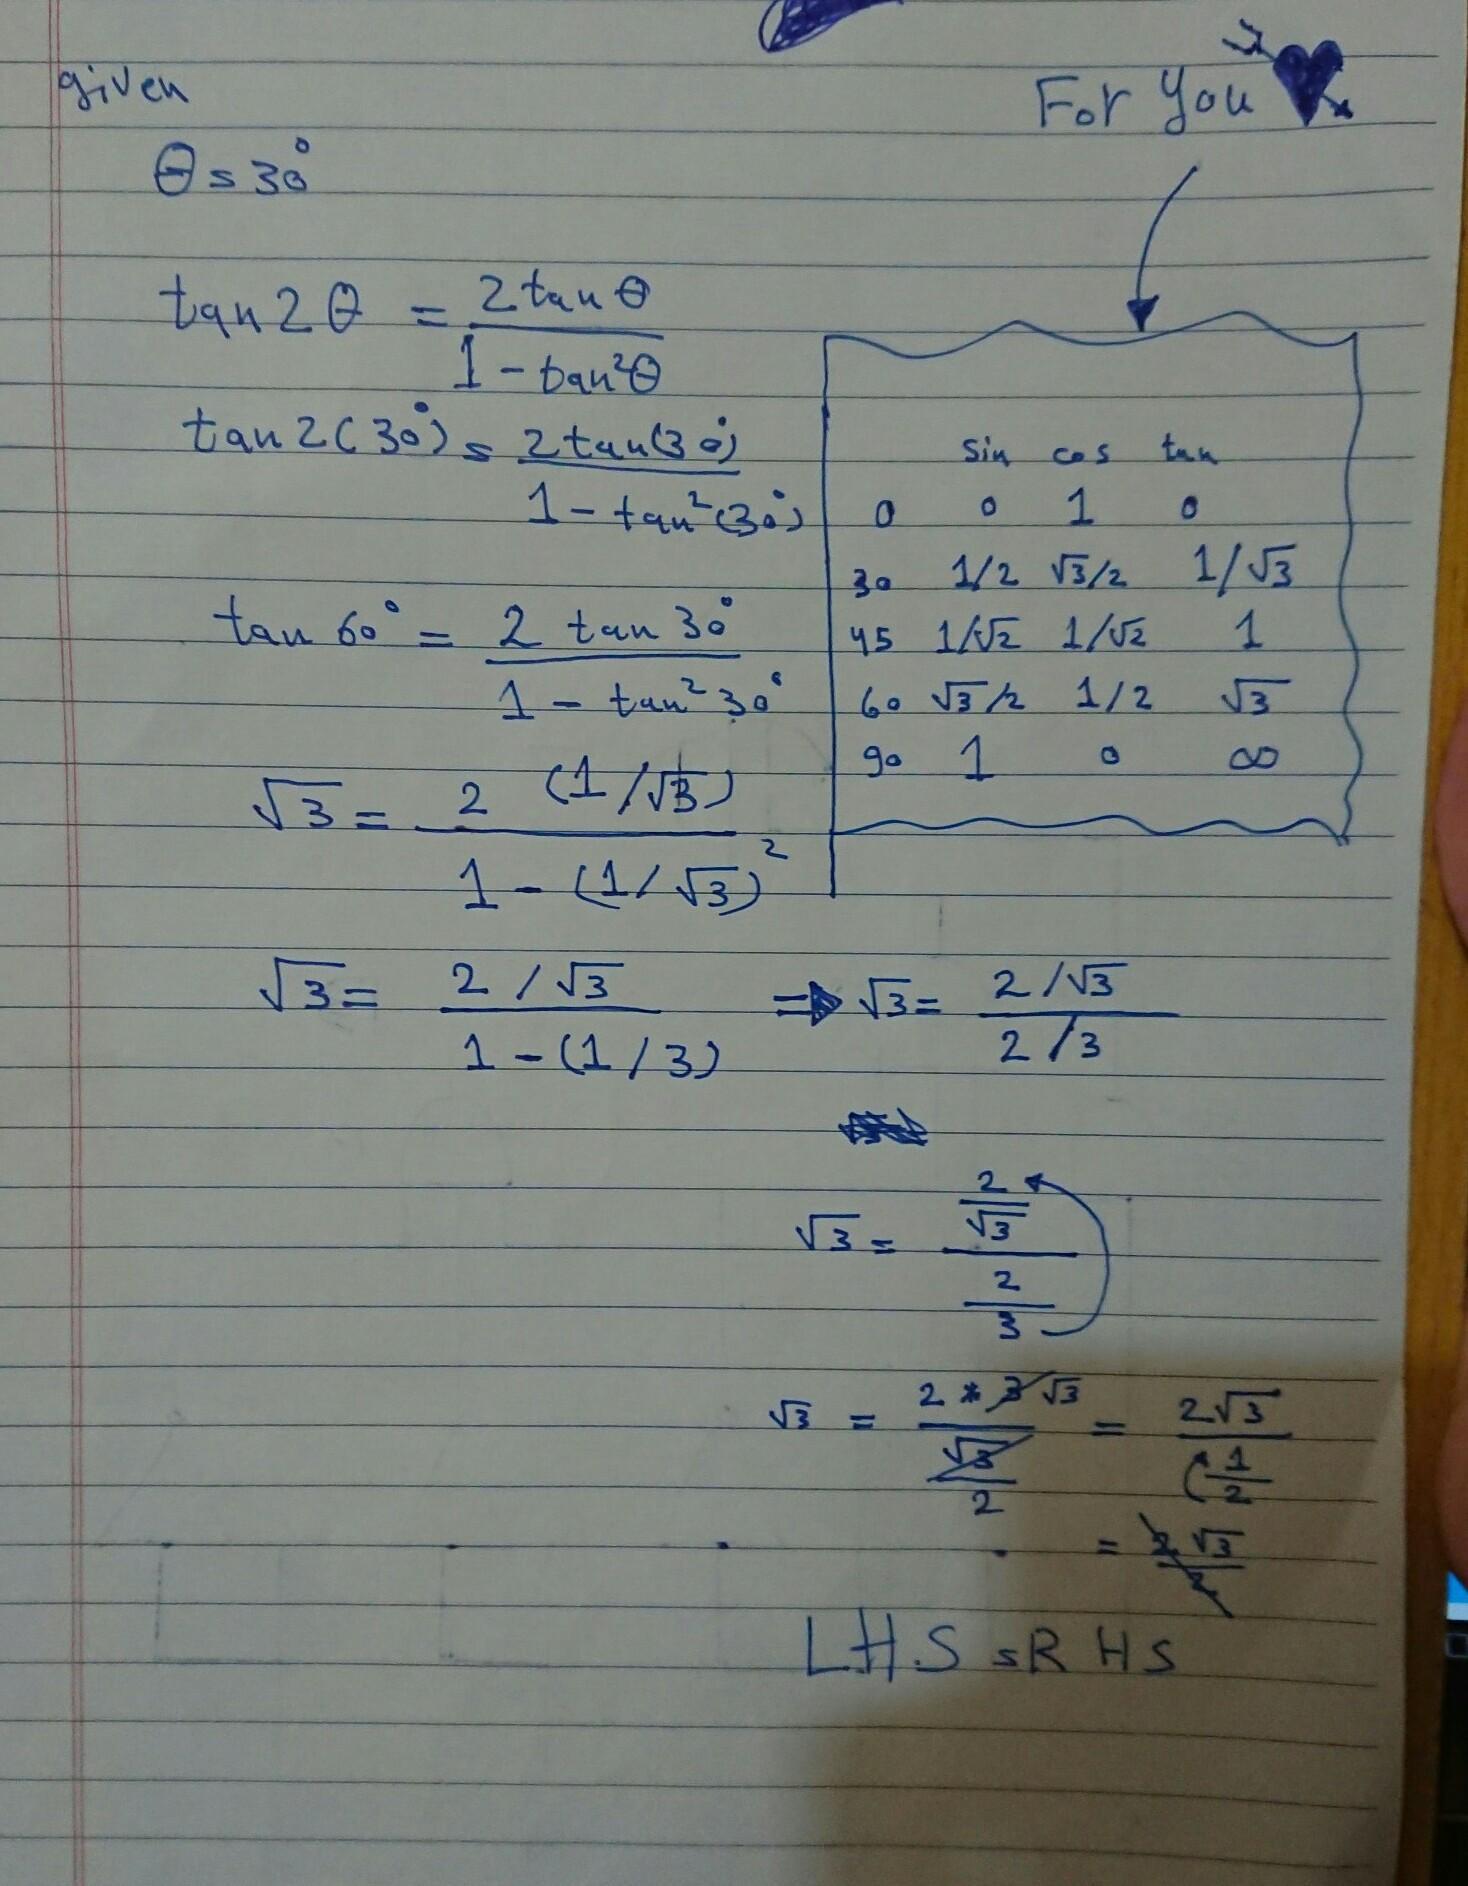 given
For You
θ = 30°
tan 2θ = 2 tan θ / 1 - tan²θ
tan 2(30°) = 2 tan(30°) / 1 - tan²(30°)
tan 60° = 2 tan 30° / 1 - tan² 30°
√3 = 2 (1/√3) / 1 - (1/√3)²
sin cos tan
0 0 1 0
30 1/2 √3/2 1/√3
45 1/√2 1/√2 1
60 √3/2 1/2 √3
90 1 0 ∞
√3 = 2/√3 / 1-(1/3) ⇒ √3 = 2/√3 / 2/3
√3 = 2/√3 / 2/3
√3 = 2 * 3 √3 / √3/2 = 2√3 / 1/2
= 2√3/2
LHS = RHS